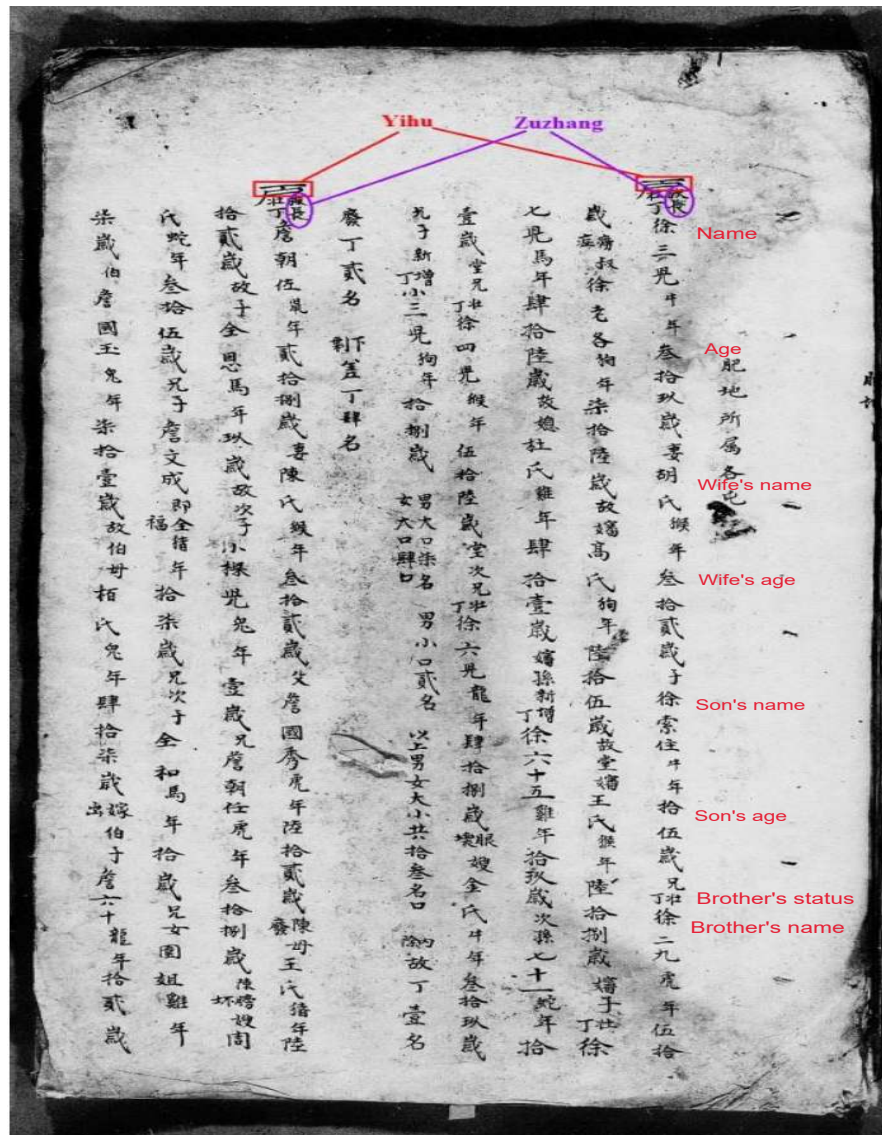 Yihu Zuzhang
Name
Age
Wife's name
Wife's age
Son's name
Son's age
Brother's status
Brother's name
肥地所属各屯
族長壯丁徐三兒牛年叁拾玖歲妻胡氏猴年叁拾貳歲子徐索住牛年拾伍歲兄壯丁徐二九虎年伍拾
歲叔徐老各狗年柒拾陸歲故嬸高氏狗年陸拾伍歲故堂嬸王氏猴年陸拾捌歲嬸子壯丁徐
七兒馬年肆拾陸歲故媳杜氏雞年肆拾壹歲嬸孫新增丁徐六十五雞年拾玖歲次孫七十一蛇年拾
壹歲堂兄壯丁徐四兒猴年伍拾陸歲堂次兄壯丁徐六兒龍年肆拾捌歲眼壞嫂金氏牛年叁拾玖歲
兄子新增丁小三兒狗年拾捌歲男大口柒名女大口肆口男小口貳名以上男女大小共拾叁名口內除故丁壹名
廢丁貳名下剩差丁肆名
族長壯丁詹朝伍鼠年貳拾捌歲妻陳氏猴年叁拾貳歲父詹國秀虎年陸拾貳歲陳廢母王氏猪年陸
拾貳歲故子全恩馬年玖歲故次子小兒兔年壹歲兄詹朝任虎年叁拾捌歲陳嫂周
氏蛇年叁拾伍歲兄子詹文成即全福猪年拾柒歲兄次子全和馬年拾歲兄女園姐雞年
柒歲伯詹國玉兔年柒拾壹歲故伯母栢氏兔年肆拾柒歲嫁出伯子詹六十龍年拾貳歲